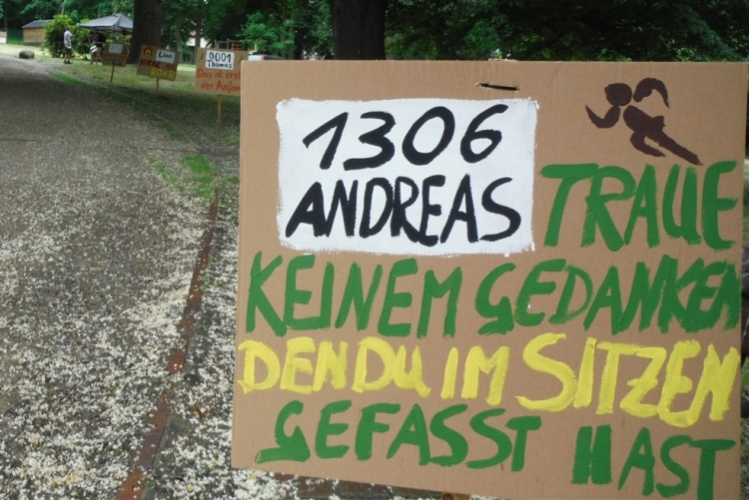 1306
ANDREAS
TRAUE
KEINEM GEDANKEN
DEN DU IM SITZEN
GEFASST HAST
0001
Thomas
Das ist erst
der Anfang
Linn